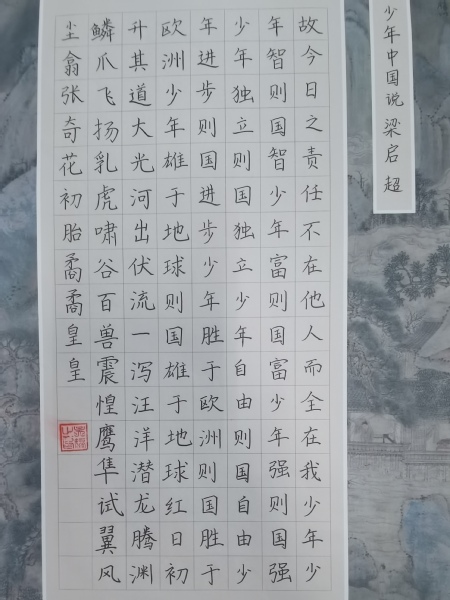 少年中国说 梁启超
故今日之责任不在他人而全在我少年少
年智则国智少年富则国富少年强则国强
少年独立则国独立少年自由则国自由少
年进步则国进步少年胜于欧洲则国胜于
欧洲少年雄于地球则国雄于地球红日初
升其道大光河出伏流一泻汪洋潜龙腾渊
鳞爪飞扬乳虎啸谷百兽震惶鹰隼试翼风
尘翕张奇花初胎矞矞皇皇